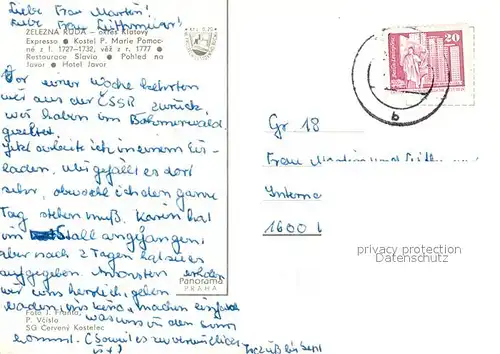 Liebe Frau Martin!
Liebe Frau
ŽELEZNÁ RUDA – okres Klatovy
Expresso • Kostel P. Marie Pomoc-
né z l. 1727–1732, věž z r. 1777 •
Restaurace Slavia • Pohled na
Javor • Hotel Javor
Vor einer Woche kehrten
wir aus der ČSSR zurück,
wir haben im Böhmerwald
gezeltet.
Jetzt arbeite ich in einem Eis-
laden, mir gefällt es dort
sehr, obwohl ich den ganzen
Tag stehen muß. Karin hat
im Stall angefangen,
aber nach 2 Tagen hat sie es
aufgegeben. Ansonsten erholen
wir uns herrlich, gehen
baden, ins Kino, machen einfach
was uns in den Sinn
kommt. (Soweit es zu verwirklichen
ist)
Panorama
PRAHA
Foto J. Franta,
P. Včíslo
SG Červený Kostelec
20
b
Gr 18
Frau Martin und
Interne
1600
privacy protection
Datenschutz
Tschüß bis Sept